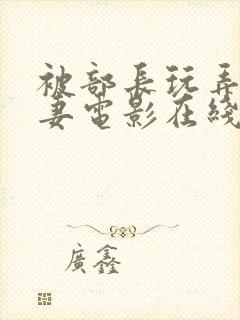 被部長玩弄
妻電影在綫
廣鑫